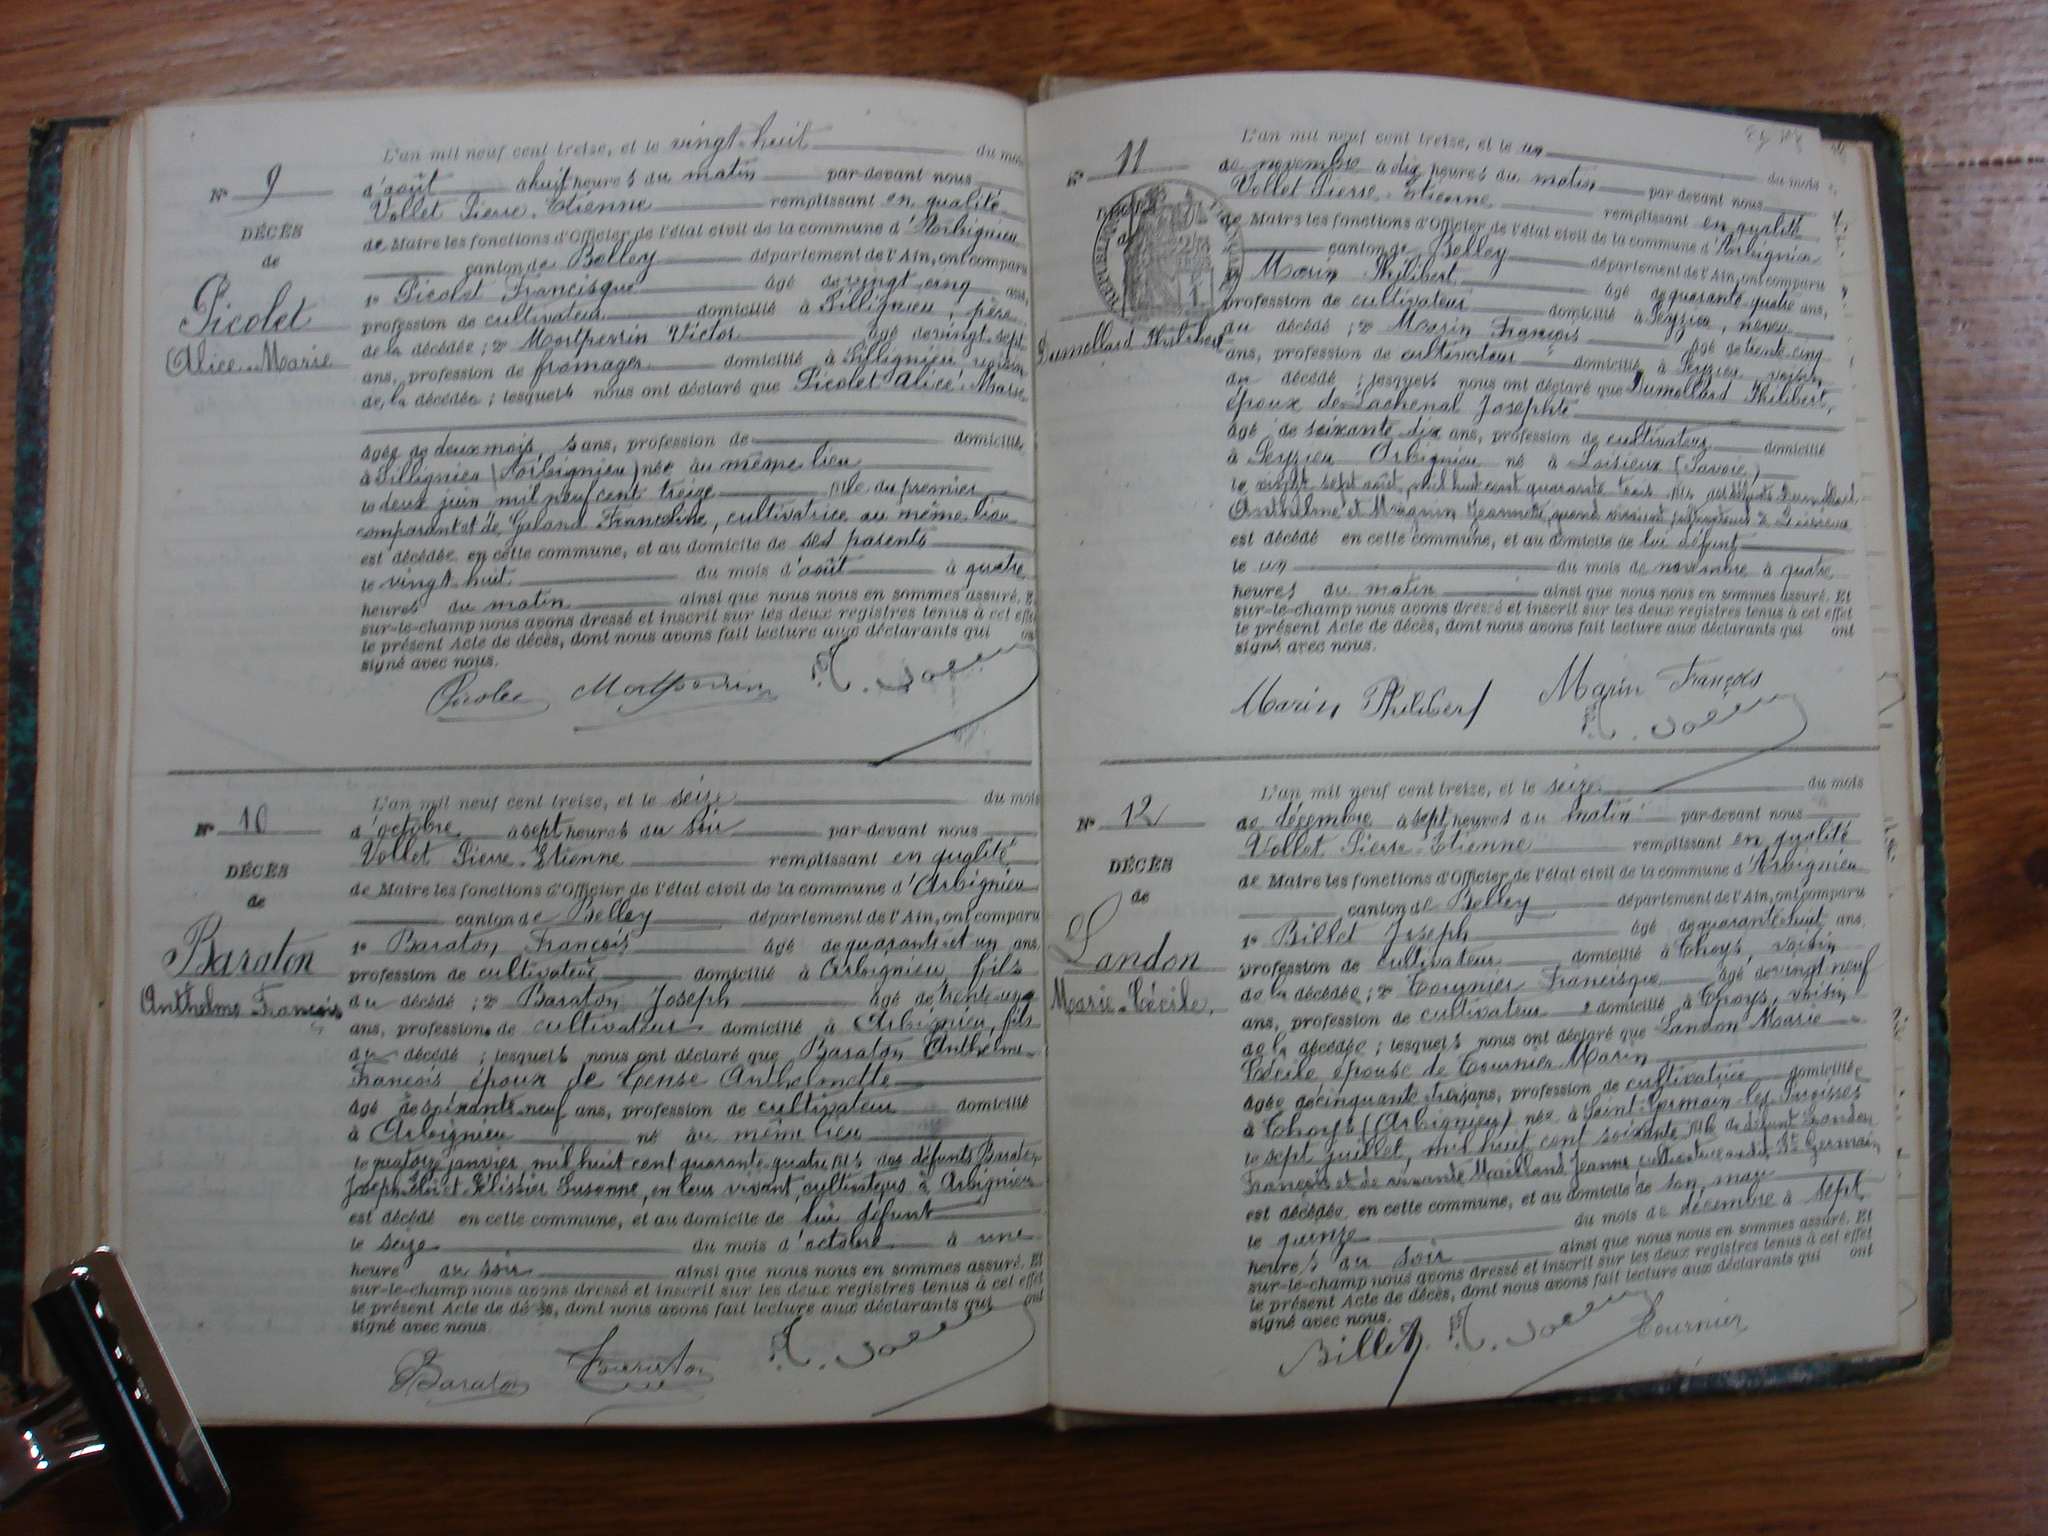 L'an mil neuf cent treize, et le vingt-huit du mois
N° 9
d'août à huit heures du matin par-devant nous
Vollet Pierre-Etienne remplissant en qualité
DÉCÈS
de Maire les fonctions d'Officier de l'état civil de la commune d'Arbignieu
de
canton de Belley département de l'Ain, ont comparu
Picolet
1° Picolet Francisque âgé de vingt cinq ans,
profession de cultivateur domicilié à Sillignieu, père
Alice-Marie
de la décédée; 2° Montperrin Victor âgé de vingt-sept
ans, profession de fromager domicilié à Sillignieu voisin
de la décédée; lesquels nous ont déclaré que Picolet Alice-Marie
âgée de deux mois, ans, profession de domicilié
à Sillignieu (Arbignieu) née au même lieu
le deux juin mil neuf cent treize fille du premier
comparant et de Galand Francoline, cultivatrice au même lieu
est décédée en cette commune, et au domicile de ses parents
le vingt huit du mois d'août à quatre
heures du matin ainsi que nous nous en sommes assuré. Et
sur-le-champ nous avons dressé et inscrit sur les deux registres tenus à cet effet
le présent Acte de décès, dont nous avons fait lecture aux déclarants qui ont
signé avec nous.
Picolet Montperrin
L'an mil neuf cent treize, et le seize du mois
N° 10
d'octobre à sept heures du soir par-devant nous
Vollet Pierre-Etienne remplissant en qualité
DÉCÈS
de Maire les fonctions d'Officier de l'état civil de la commune d'Arbignieu
de
canton de Belley département de l'Ain, ont comparu
Baraton
1° Baraton François âgé de quarante et un ans,
profession de cultivateur domicilié à Arbignieu, fils
Anthelme François
du décédé; 2° Baraton Joseph âgé de trente-un
ans, profession de cultivateur domicilié à Arbignieu, fils
du décédé; lesquels nous ont déclaré que Baraton Anthelme-
François époux de Cense Anthelmette
âgé de soixante-neuf ans, profession de cultivateur domicilié
à Arbignieu né au même lieu
le quatorze janvier mil huit cent quarante-quatre fils des défunts Baraton
Joseph et Pélissier Susanne, en leur vivant, cultivateurs à Arbignieu
est décédé en cette commune, et au domicile de lui défunt
le seize du mois d'octobre à une
heure du soir ainsi que nous nous en sommes assuré. Et
sur-le-champ nous avons dressé et inscrit sur les deux registres tenus à cet effet
le présent Acte de décès, dont nous avons fait lecture aux déclarants qui ont
signé avec nous.
Baraton Baraton
L'an mil neuf cent treize, et le un du mois
N° 11
de novembre à dix heures du matin par-devant nous
Vollet Pierre-Etienne remplissant en qualité
de Maire les fonctions d'Officier de l'état civil de la commune d'Arbignieu
canton de Belley département de l'Ain, ont comparu
Marin Philibert âgé de quarante quatre ans,
profession de cultivateur domicilié à Peyzieu, neveu
Dumollard Philibert
du décédé; 2° Marin François âgé de trente cinq
ans, profession de cultivateur domicilié à Peyzieu voisin
du décédé; lesquels nous ont déclaré que Dumollard Philibert,
époux de Lachenal Josephte
âgé de soixante-dix ans, profession de cultivateur domicilié
à Peyzieu Arbignieu né à Loisieux (Savoie)
le vingt sept août mil huit cent quarante trois fils des défunts Dumollard
Anthelme et Magnin Jeannette, quand vivaient cultivateurs à Loisieux
est décédé en cette commune, et au domicile de lui défunt
le un du mois de novembre à quatre
heures du matin ainsi que nous nous en sommes assuré. Et
sur-le-champ nous avons dressé et inscrit sur les deux registres tenus à cet effet
le présent Acte de décès, dont nous avons fait lecture aux déclarants qui ont
signé avec nous.
Marin Philibert Marin François
L'an mil neuf cent treize, et le seize du mois
N° 12
de décembre à sept heures du matin par-devant nous
Vollet Pierre-Etienne remplissant en qualité
DÉCÈS
de Maire les fonctions d'Officier de l'état civil de la commune d'Arbignieu
de
canton de Belley département de l'Ain, ont comparu
Landon
1° Billet Joseph âgé de quarante-huit ans,
profession de cultivateur domicilié à Thoys, voisin
Marie-Cécile
de la décédée; 2° Tournier Francisque âgé de vingt neuf
ans, profession de cultivateur domicilié à Thoys, voisin
de la décédée; lesquels nous ont déclaré que Landon Marie
Cécile épouse de Tournier Marin
âgée de cinquante-trois ans, profession de cultivatrice domiciliée
à Thoys (Arbignieu) née à Saint-Germain-les-Paroisses
le sept juillet, mil huit cent soixante fille de défunt Landon
François et de vivante Mailland Jeanne cultivatrice à St Germain
est décédée en cette commune, et au domicile de son mari
le quinze du mois de décembre à sept
heures du soir ainsi que nous nous en sommes assuré. Et
sur-le-champ nous avons dressé et inscrit sur les deux registres tenus à cet effet
le présent Acte de décès, dont nous avons fait lecture aux déclarants qui ont
signé avec nous.
Billet Tournier